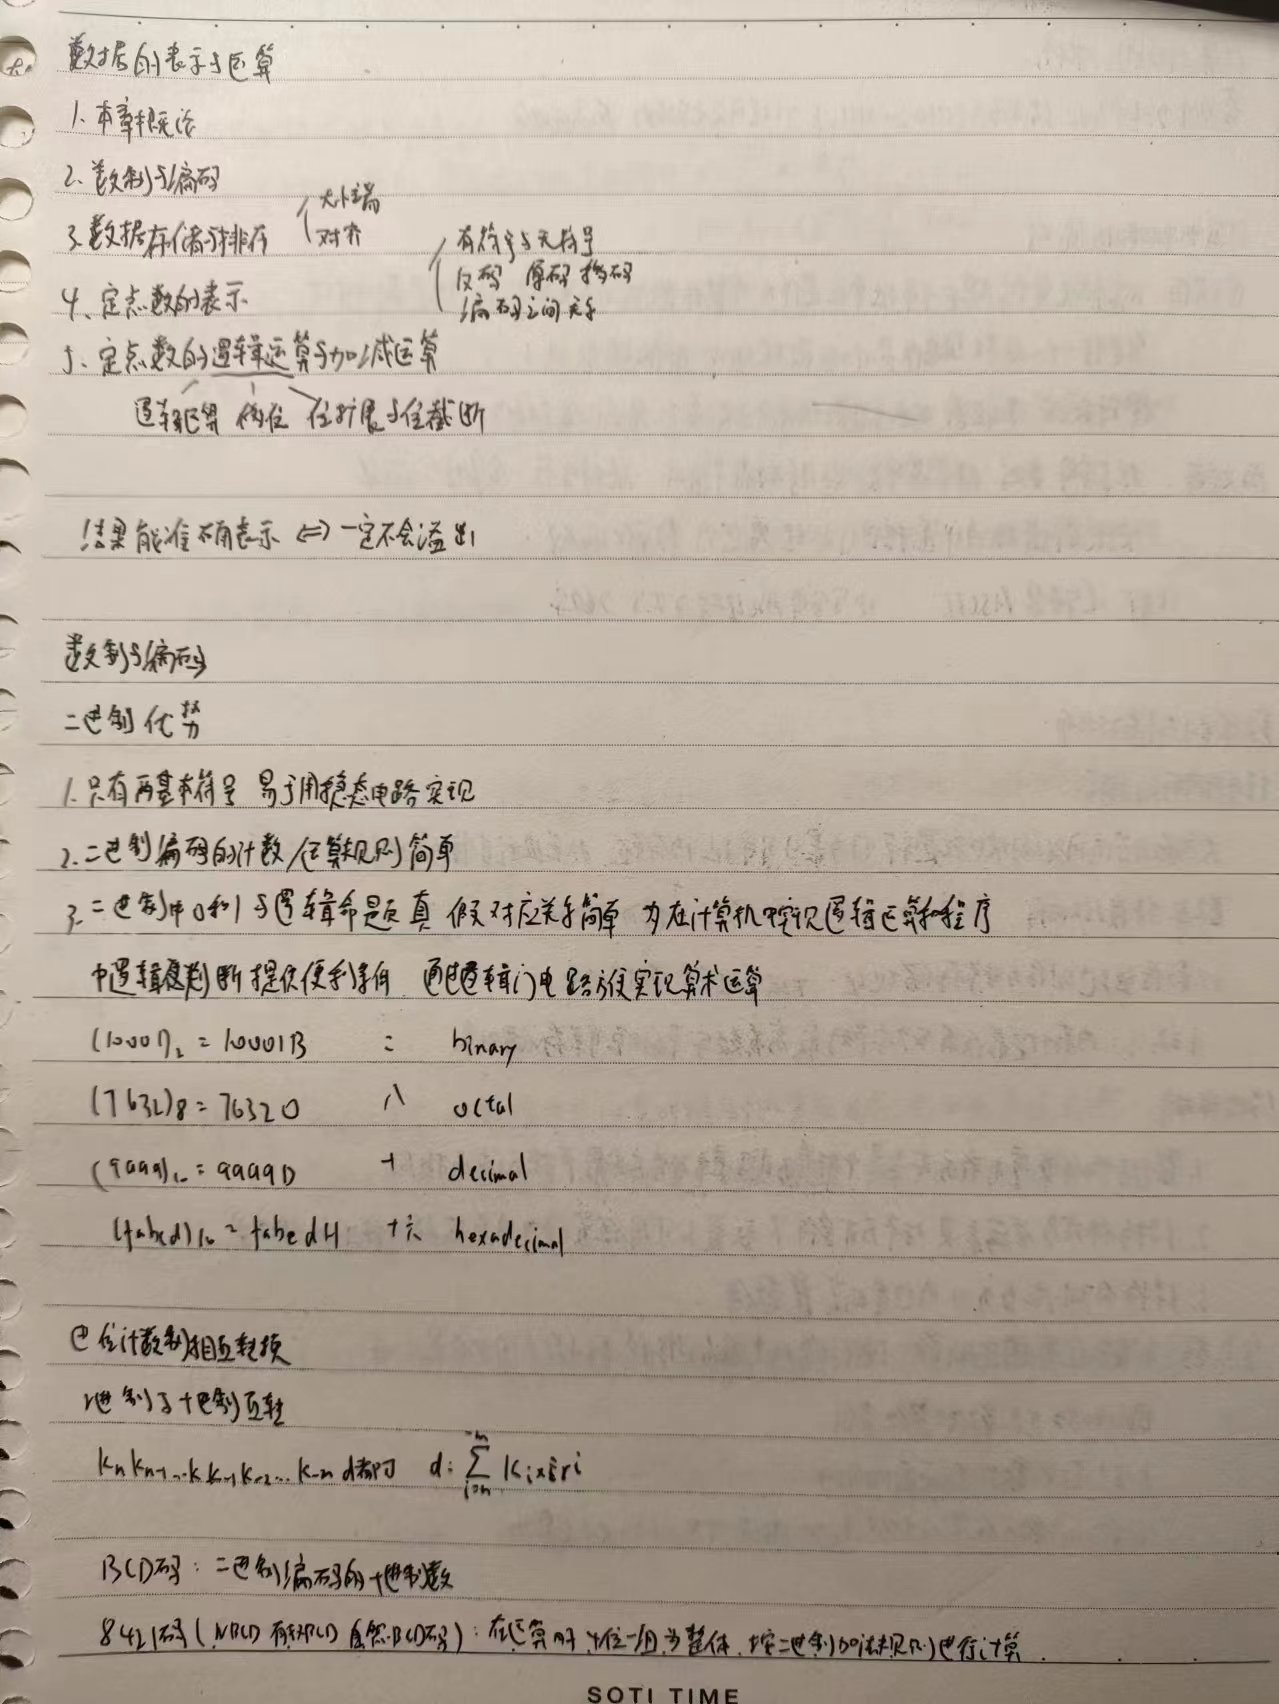 数据的表示与运算
1. 本章概论
2. 数制与编码
大小端
3. 数据存储与排列
对齐
有符号与无符号
反码 原码 移码
4. 定点数的表示
编码之间关系
5. 定点数的逻辑运算与加减运算
逻辑运算 移位 位扩展与位截断
结果能准确表示 <=> 一定不会溢出
数制与编码
二进制优势
1. 只有两基本符号 易于用稳态电路实现
2. 二进制编码的计数/运算规则简单
3. 二进制中0和1与逻辑命题真 假对应关系简单 为在计算机中实现逻辑运算和程序
中逻辑判断提供便利条件 通过逻辑门电路方便实现算术运算
(10001)₂ = 10001B 二 binary
(7632)8 = 7632O 八 octal
(9999)₁₀ = 9999D 十 decimal
(fabcd)₁₆ = fabcdH 十六 hexadecimal
进位计数制相互转换
r进制与十进制互转
BCD码：二进制编码的十进制数
8421码 (NBCD 自然BCD码)：在运算时 4位一组为整体，按二进制加法规则进行计算
SOTI TIME